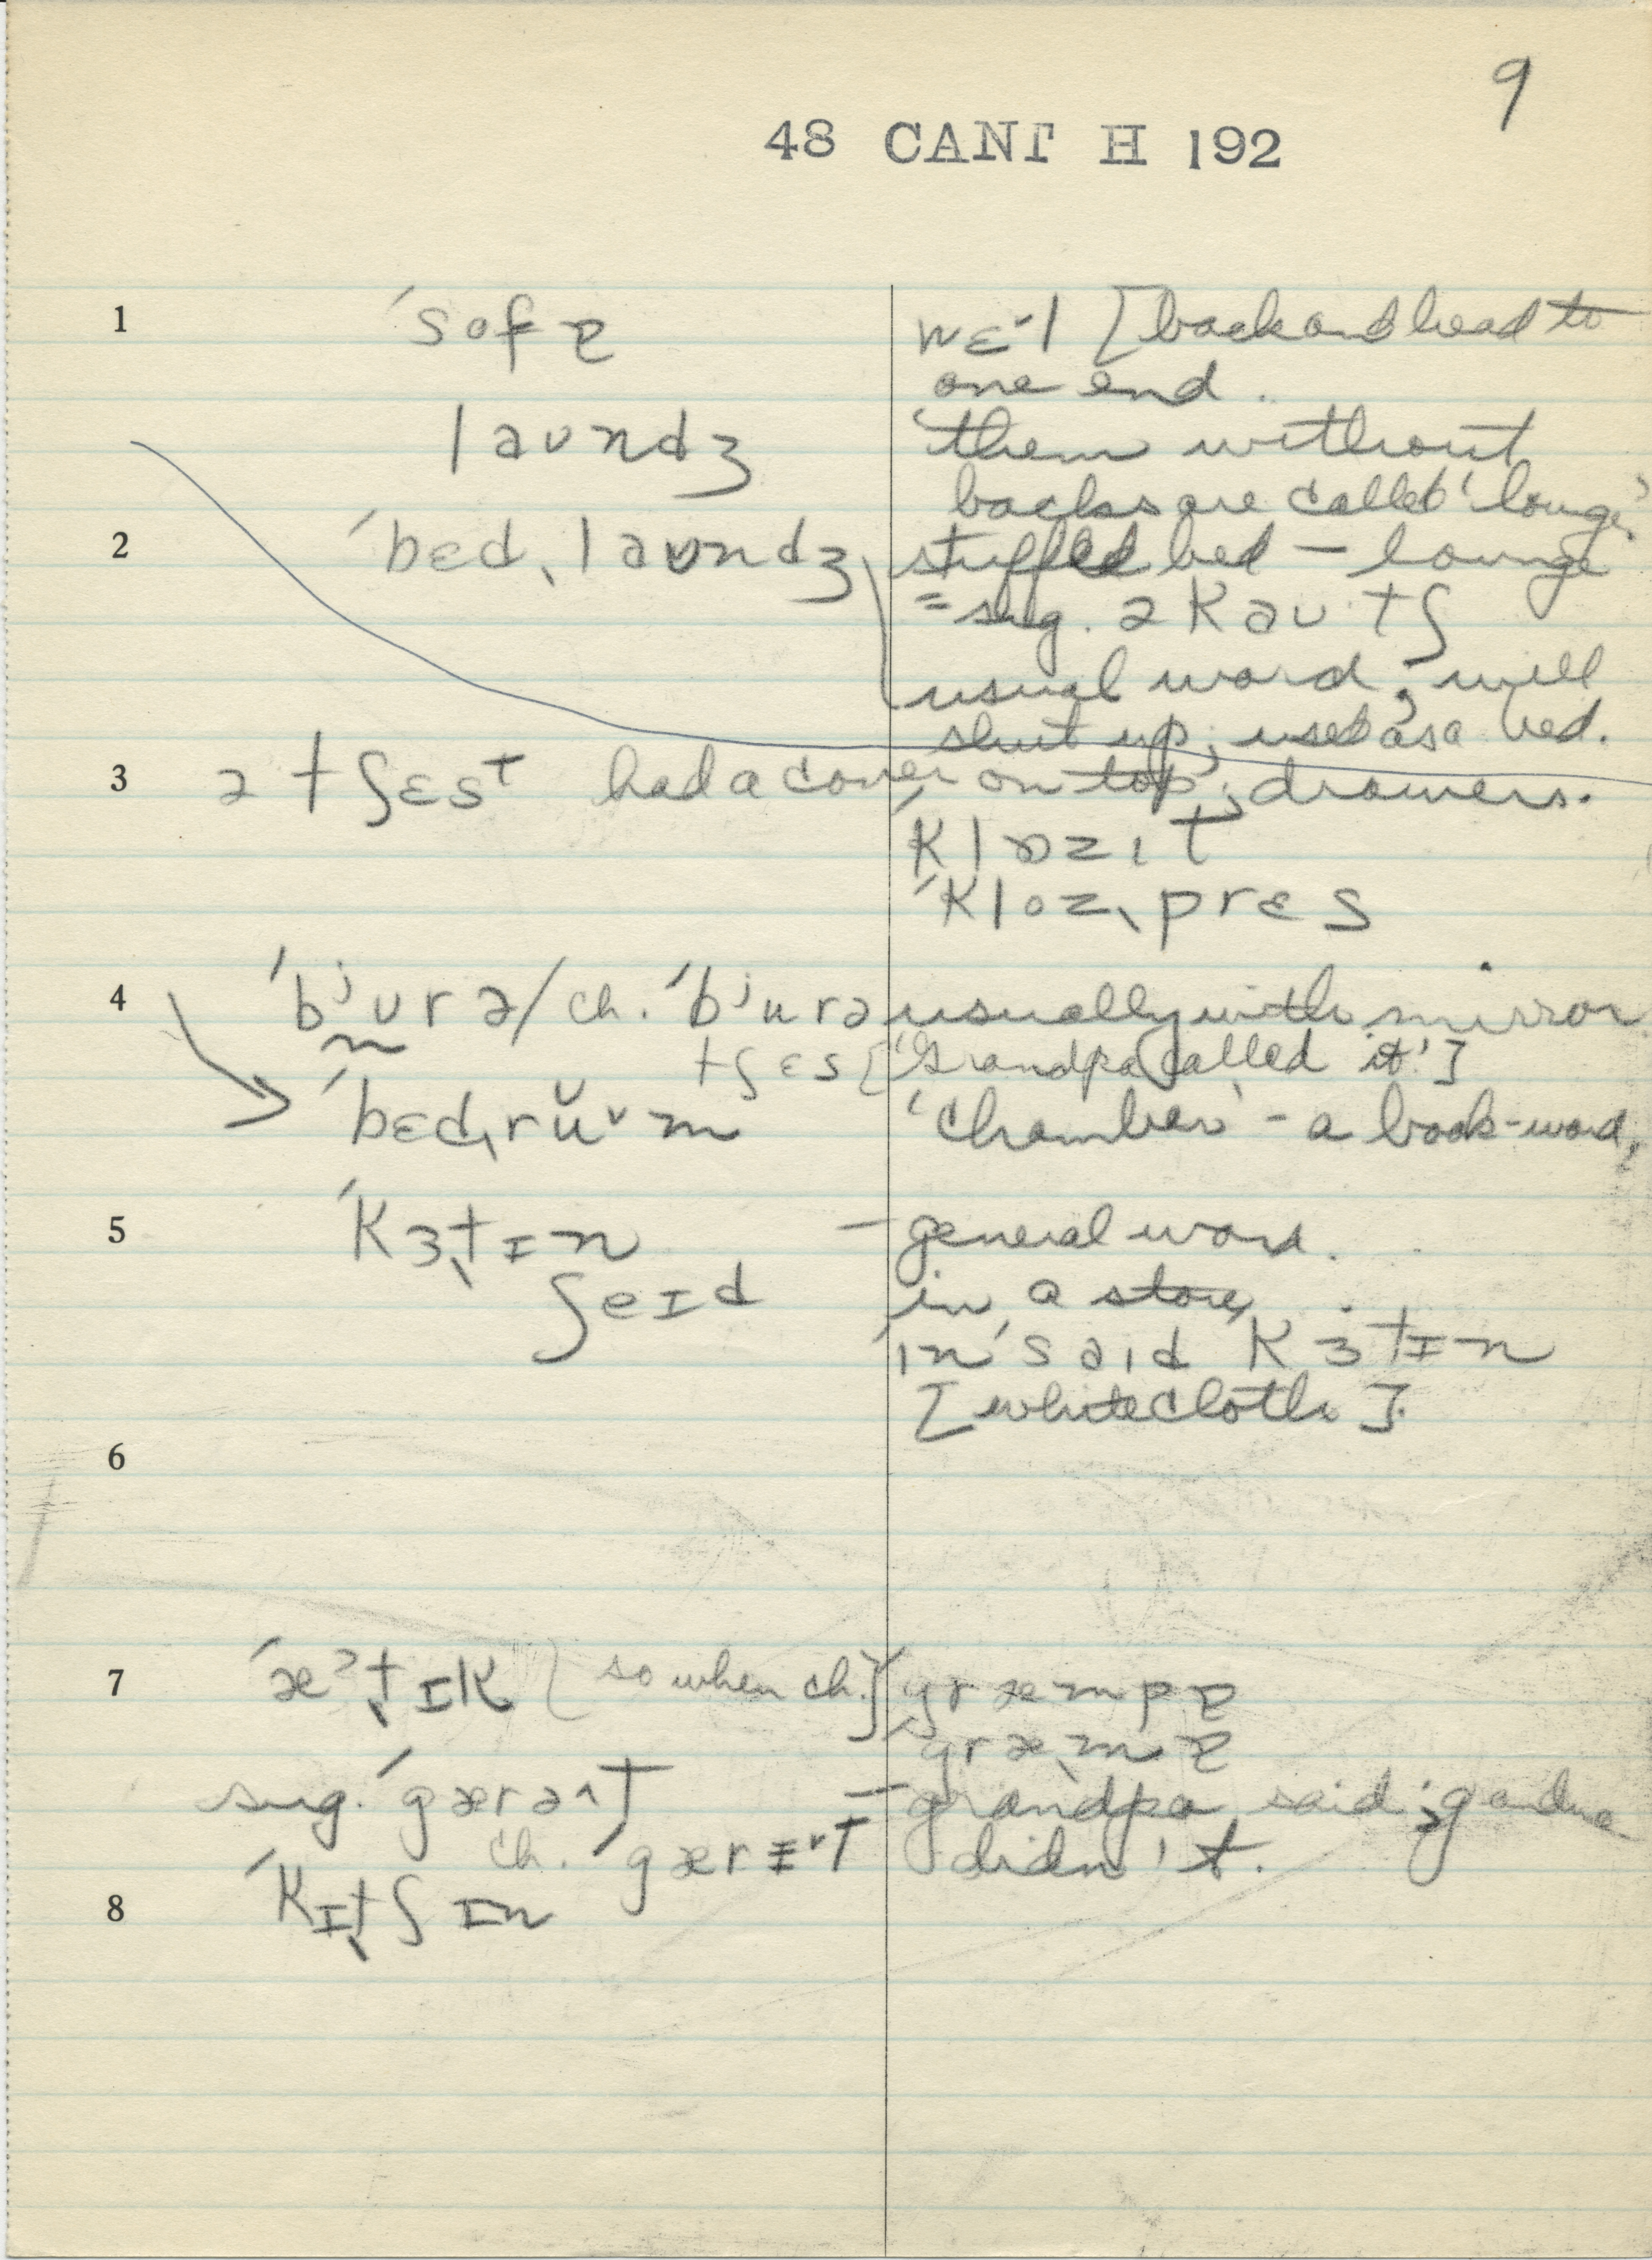 9
48 CANT H 192
1 ˈsofɐ wɛ·l [back and head to
one end.
laʊndʒ 'them without
backs are called 'lounge'
2 ˈbɛdˌlaʊndʒ stuffed bed – lounge
= sug. ə kaʊtʃ
usual word; will
shut up; used as a bed.
3 ə tʃɛst had a cover on top; drawers.
ˈklɒzɪt
ˈklozˌprɛs
4 ˈbʲʊrə / ch. ˈbʲurə usually with mirror
tʃɛs ['Grandpa called it']
ˈbɛdˌrŭᵛm 'chamber' – a book-word,
5 ˈkɜtɪn – general word.
ʃeɪd in a store,
ˈɪnˈsaɪd ˈkɜtɪn
[white cloth].
6
7 ˈæˀtɪk [so when ch.] ˈgræmpɐ
ˈgræmɐ
sug. ˈgærət – grandpa said; gandma
ch. ˈgærɪt didn't.
8 ˈkɪtʃɪn